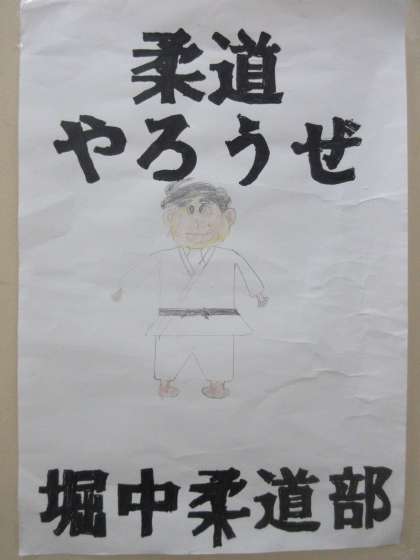 柔道
やろうぜ
堀中柔道部